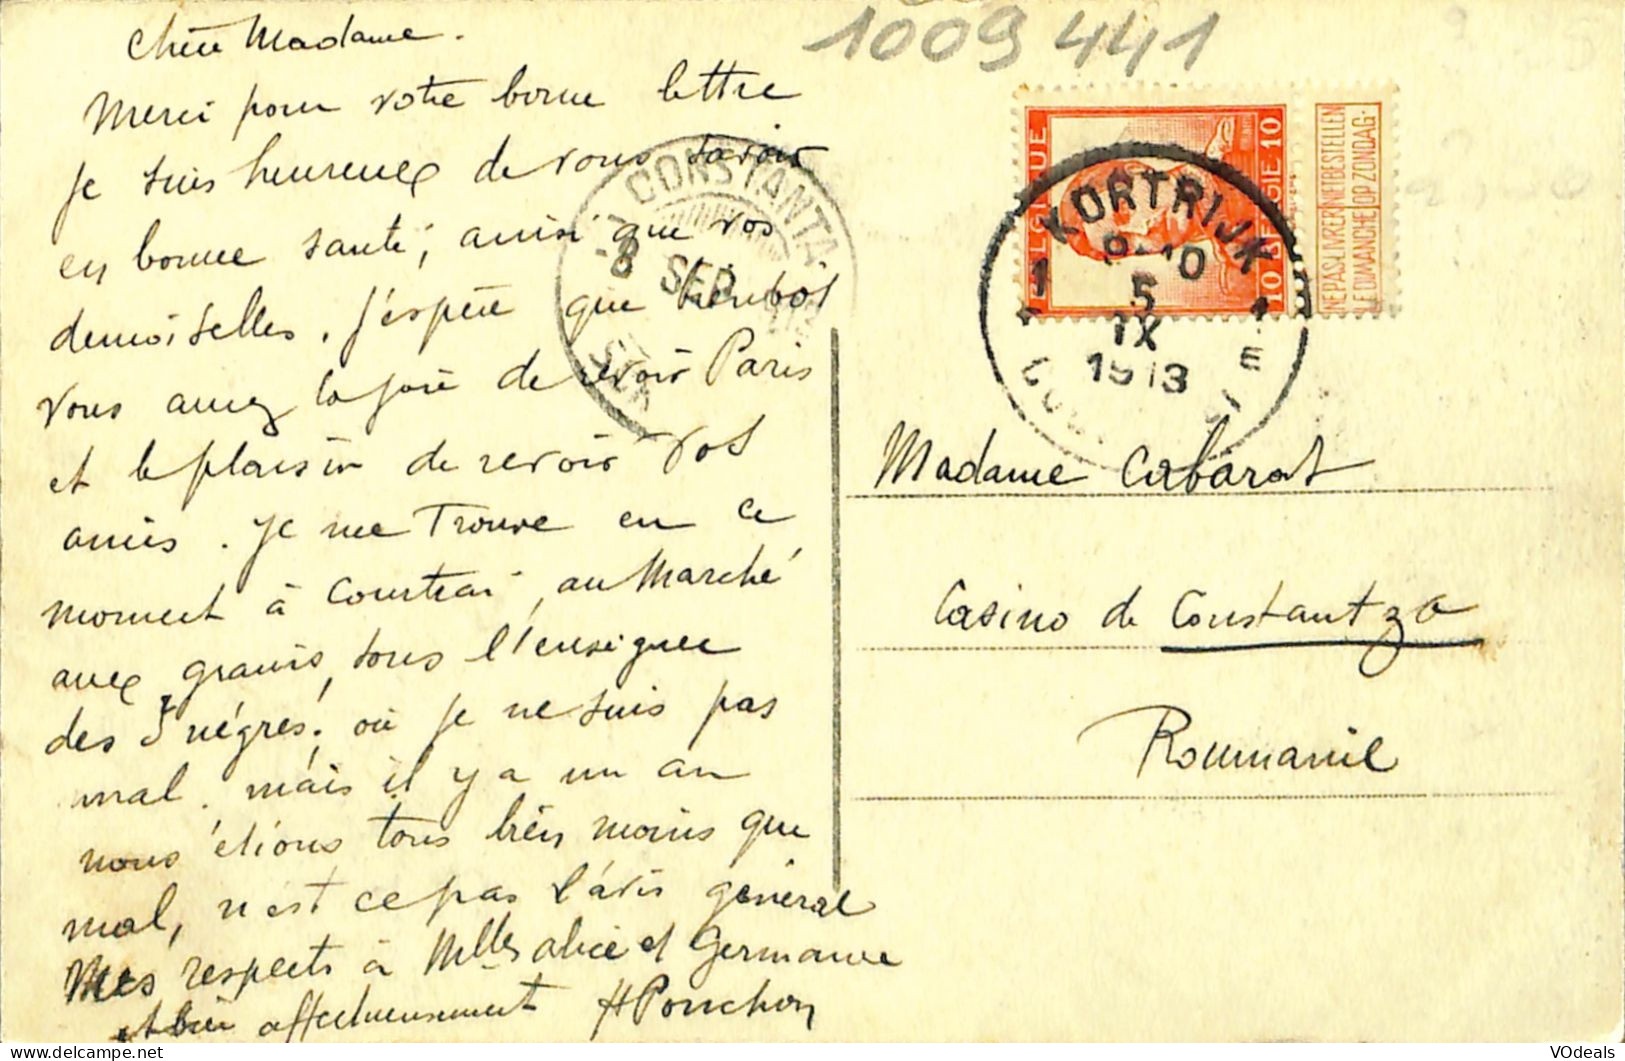 1009 441
Chère Madame.
Merci pour votre bonne lettre
je suis heureux de vous savoir
en bonne santé, ainsi que vos
demoiselles. J'espère que bientôt
vous aurez la joie de revoir Paris
et le plaisir de revoir vos
amis. Je me trouve en ce
moment à Courtrai, au Marché
aux grains, sous l'enseigne
des 3 nègres, où je ne suis pas
mal, mais il y a un an
nous étions tous bien moins que
mal, n'est ce pas l'avis général
Mes respects à Mlles alice et Germaine
et bien affectueusement HPonchon
CONSTANTA
8 SEP
BELGIQUE
10 BELGIE 10
NE PAS LIVRER NIET BESTELLEN
LE DIMANCHE OP ZONDAG
1 KORTRIJK 1
9-10
5
IX
1913
Madame Cabarat
Casino de Constantza
Roumanie
VOdeals